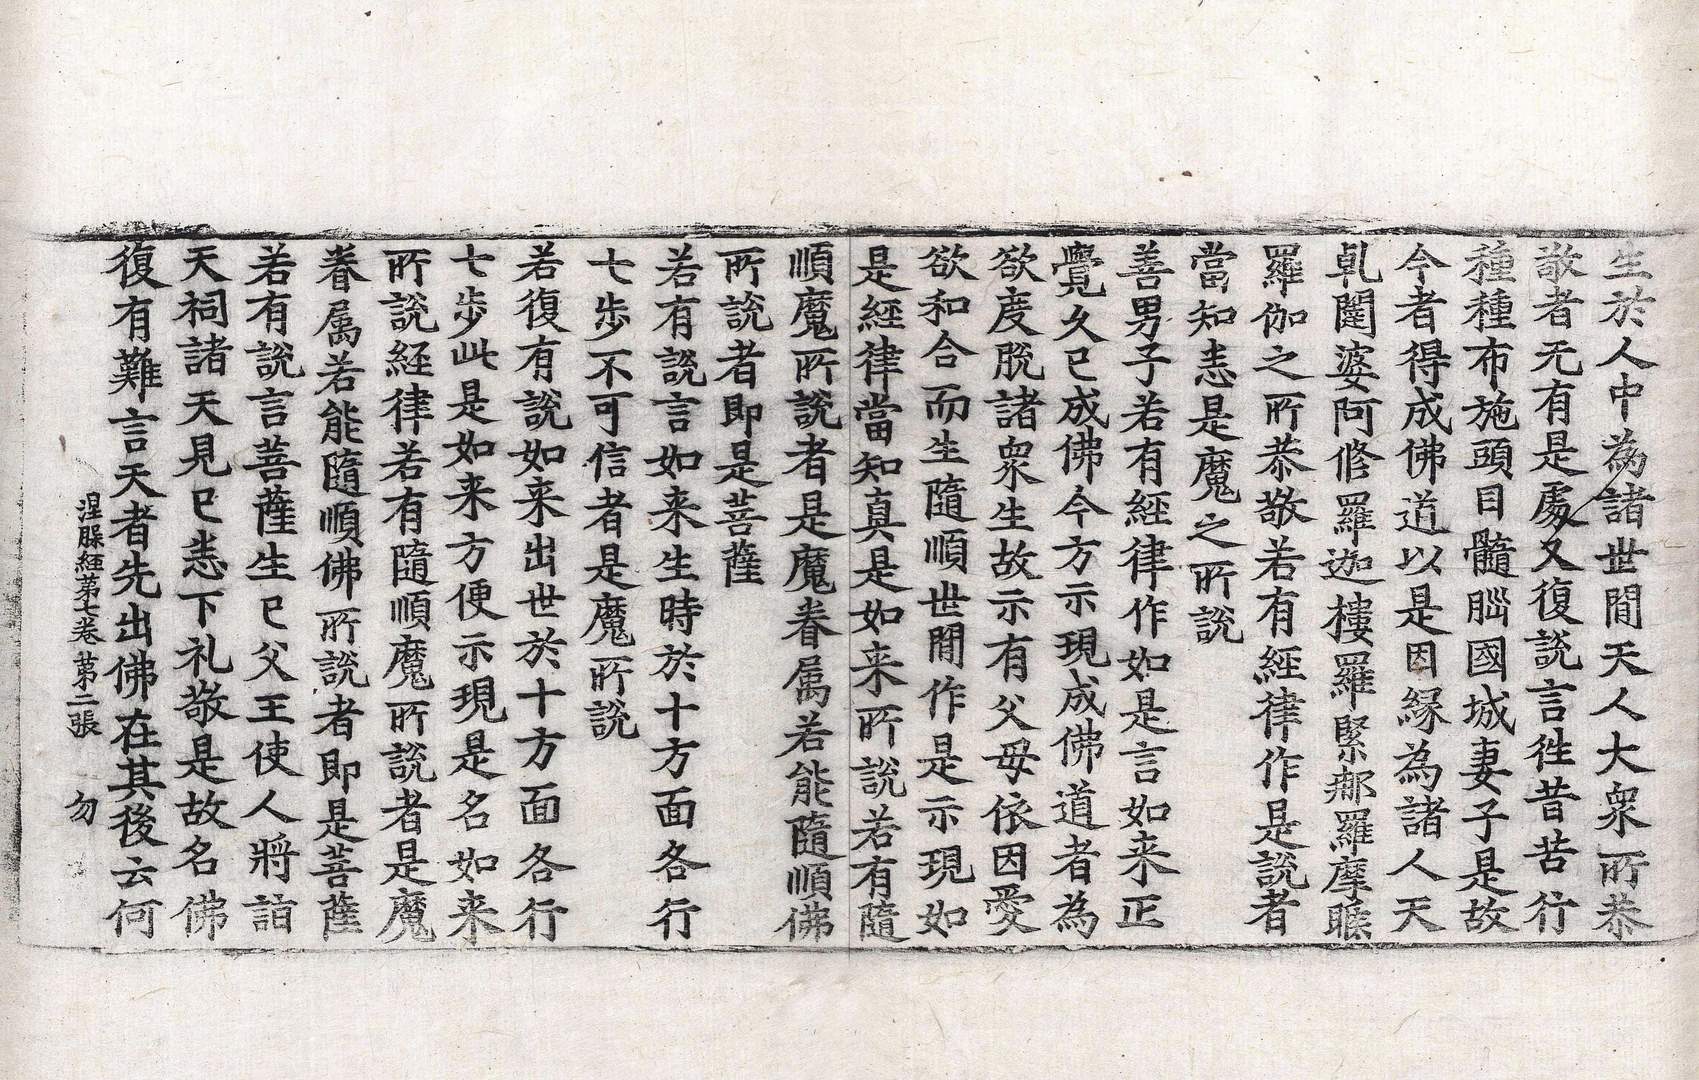 生於人中為諸世閒天人大衆所恭
敬者无有是處又復說言徃昔苦行
種種布施頭目髓𦛁國城妻子是故
今者得成佛道以是因緣為諸人天
乹闥婆阿修羅迦樓羅緊那羅摩睺
羅伽之所恭敬若有經律作是說者
當知悉是魔之所說
善男子若有經律作如是言如来正
覺久已成佛今方示現成佛道者為
欲度脫諸衆生故示有父母依因愛
欲和合而生隨順世閒作是示現如
是經律當知真是如来所說若有隨
順魔所說者是魔眷属若能隨順佛
所說者即是菩薩
若有說言如来生時於十方面各行
七步不可信者是魔所說
若復有說如来出世於十方面各行
七步此是如来方便示現是名如来
所說經律若有隨順魔所說者是魔
眷属若能隨順佛所說者即是菩薩
若有說言菩薩生已父王使人將詣
天祠諸天見已悉下礼敬是故名佛
復有難言天者先出佛在其後云何
涅槃経第七卷 第二張 勿